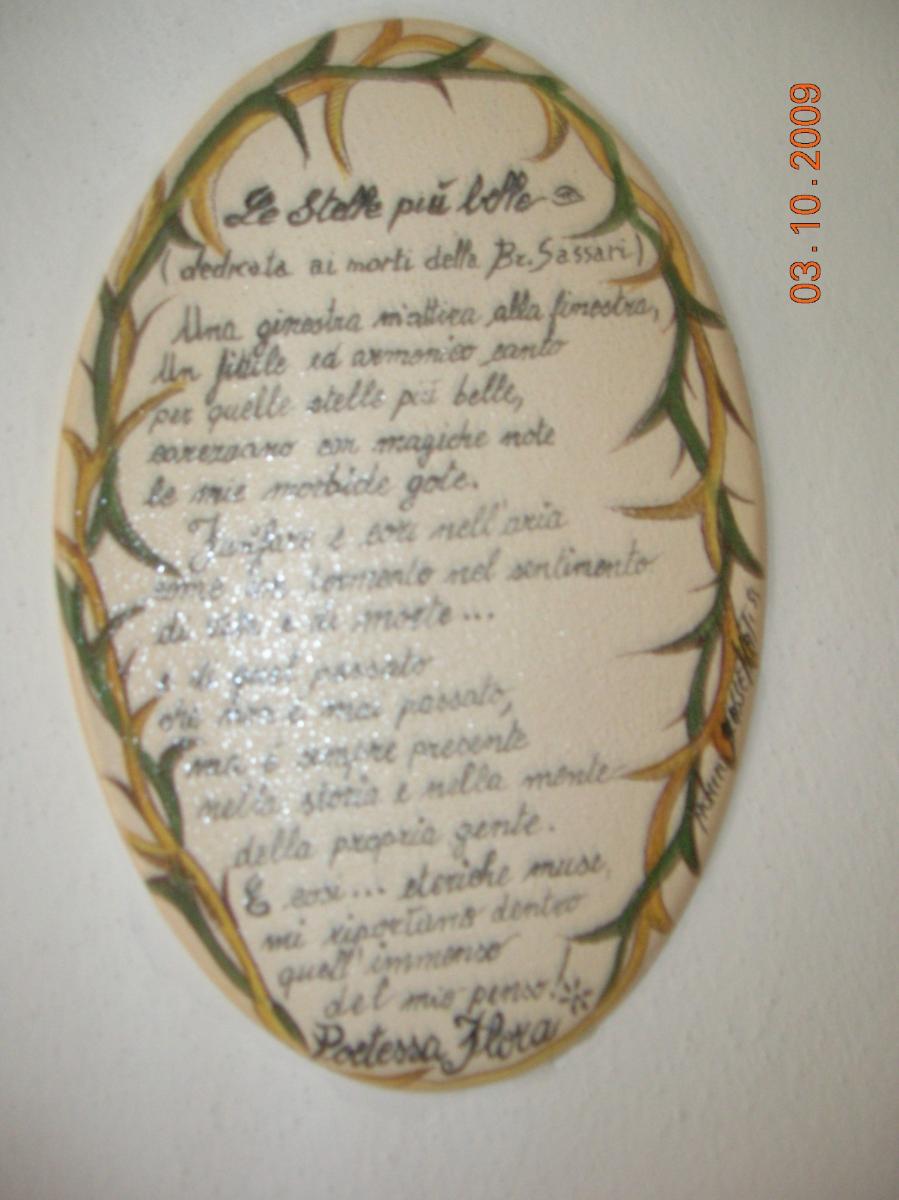 Le Stelle più belle
(dedicata ai morti della Br. Sassari)
Una ginestra m'attira alla finestra,
Un fittile ed armonico canto
per quelle stelle più belle,
carezzano con magiche note
le mie morbide gote.
Fanfare e cori nell'aria
come tormento nel sentimento
di vita e di morte...
e di quel passato
che non è mai passato,
ma è sempre presente
nella storia e nella mente
della propria gente.
E così... eteriche muse,
mi riportano dentro
quell'immenso
del mio penso!
Poetessa Flora
03.10.2009